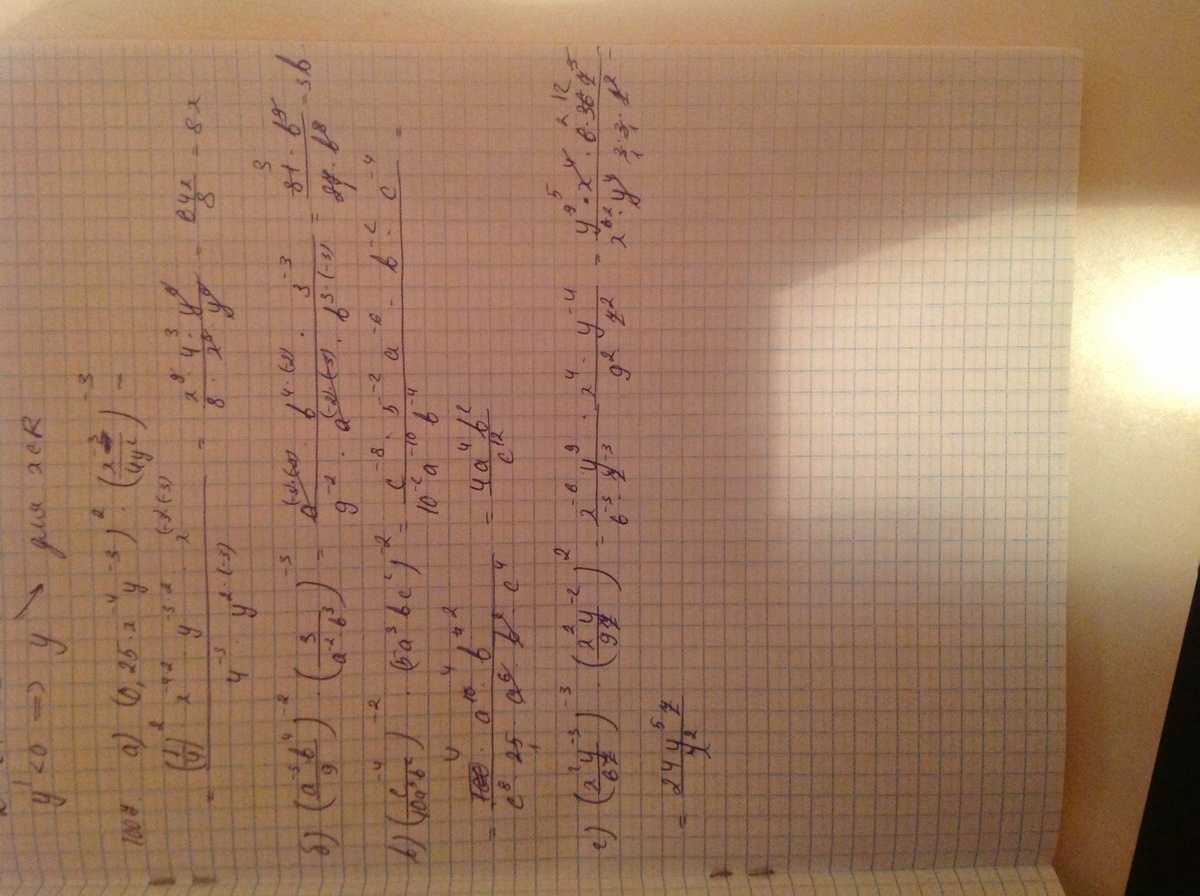 y' < 0 => y ↘ для x ∈ R
1007 а) (0,25 · x^{-4} y^{-3})^2 · (\frac{x^{-3}}{4y^2})^{-3} =
= \frac{(\frac{1}{4})^2 x^{-4·2} · y^{-3·2} · x^{(-3)·(-3)}}{4^{-3} · y^{2·(-3)}} = \frac{x^9 · 4^3 · y^6}{8 · x^8 y^6} = \frac{64x}{8} = 8x
б) (\frac{a^{-3} b^4}{9})^{-2} · (\frac{3}{a^{-2} b^3})^{-3} = \frac{a^{(-3)·(-2)} · b^{4·(-2)} · 3^{-3}}{9^{-2} · a^{(-2)·(-3)} · b^{3·(-3)}} = \frac{81 · b^9}{27 · b^8} = 3b
в) (\frac{c^{-4}}{10a^5b^2})^{-2} · (5a^3bc^2)^{-2} = \frac{c^{-8} · 5^{-2} a^{-6} · b^{-2} · c^{-4}}{10^{-2} a^{-10} b^{-4}} =
= \frac{100 · a^{10} · b^4}{c^8 · 25 · a^6 · b^2 · c^4} = \frac{4a^4 b^2}{c^{12}}
г) (\frac{x^2 y^{-3}}{6z})^{-3} · (\frac{x^2 y^{-2}}{9z})^2 = \frac{x^{-6} y^9}{6^{-3} z^{-3}} · \frac{x^4 · y^{-4}}{9^2 z^2} = \frac{y^9 · x^4 · 6 · 36 z^3}{x^6 · y^4 · 3 · 3 · z^2} =
= \frac{24 y^5 z}{x^2}